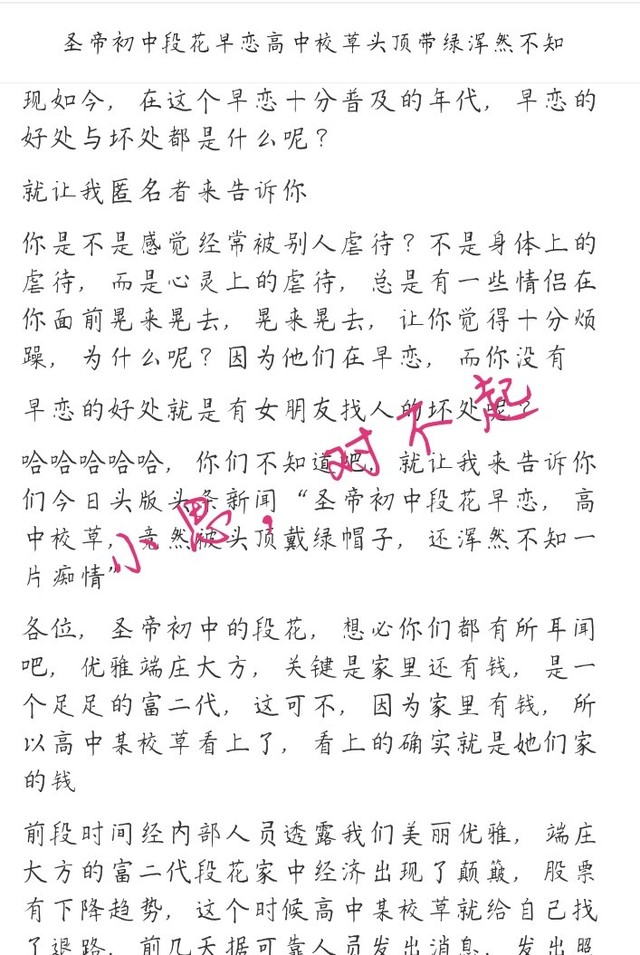 圣帝初中段花早恋高中校草头顶带绿浑然不知
现如今，在这个早恋十分普及的年代，早恋的
好处与坏处都是什么呢？
就让我匿名者来告诉你
你是不是感觉经常被别人虐待？不是身体上的
虐待，而是心灵上的虐待，总是有一些情侣在
你面前晃来晃去，晃来晃去，让你觉得十分烦
躁，为什么呢？因为他们在早恋，而你没有
早恋的好处就是有女朋友找人的坏处呢？
哈哈哈哈哈，你们不知道吧，就让我来告诉你
们今日头版头条新闻“圣帝初中段花早恋，高
中校草，竟然被头顶戴绿帽子，还浑然不知一
片痴情”
小恩，对不起
各位，圣帝初中的段花，想必你们都有所耳闻
吧，优雅端庄大方，关键是家里还有钱，是一
个足足的富二代，这可不，因为家里有钱，所
以高中某校草看上了，看上的确实就是她们家
的钱
前段时间经内部人员透露我们美丽优雅，端庄
大方的富二代段花家中经济出现了颠簸，股票
有下降趋势，这个时候高中某校草就给自己找
了退路，前几天据可靠人员发出消息，发出照